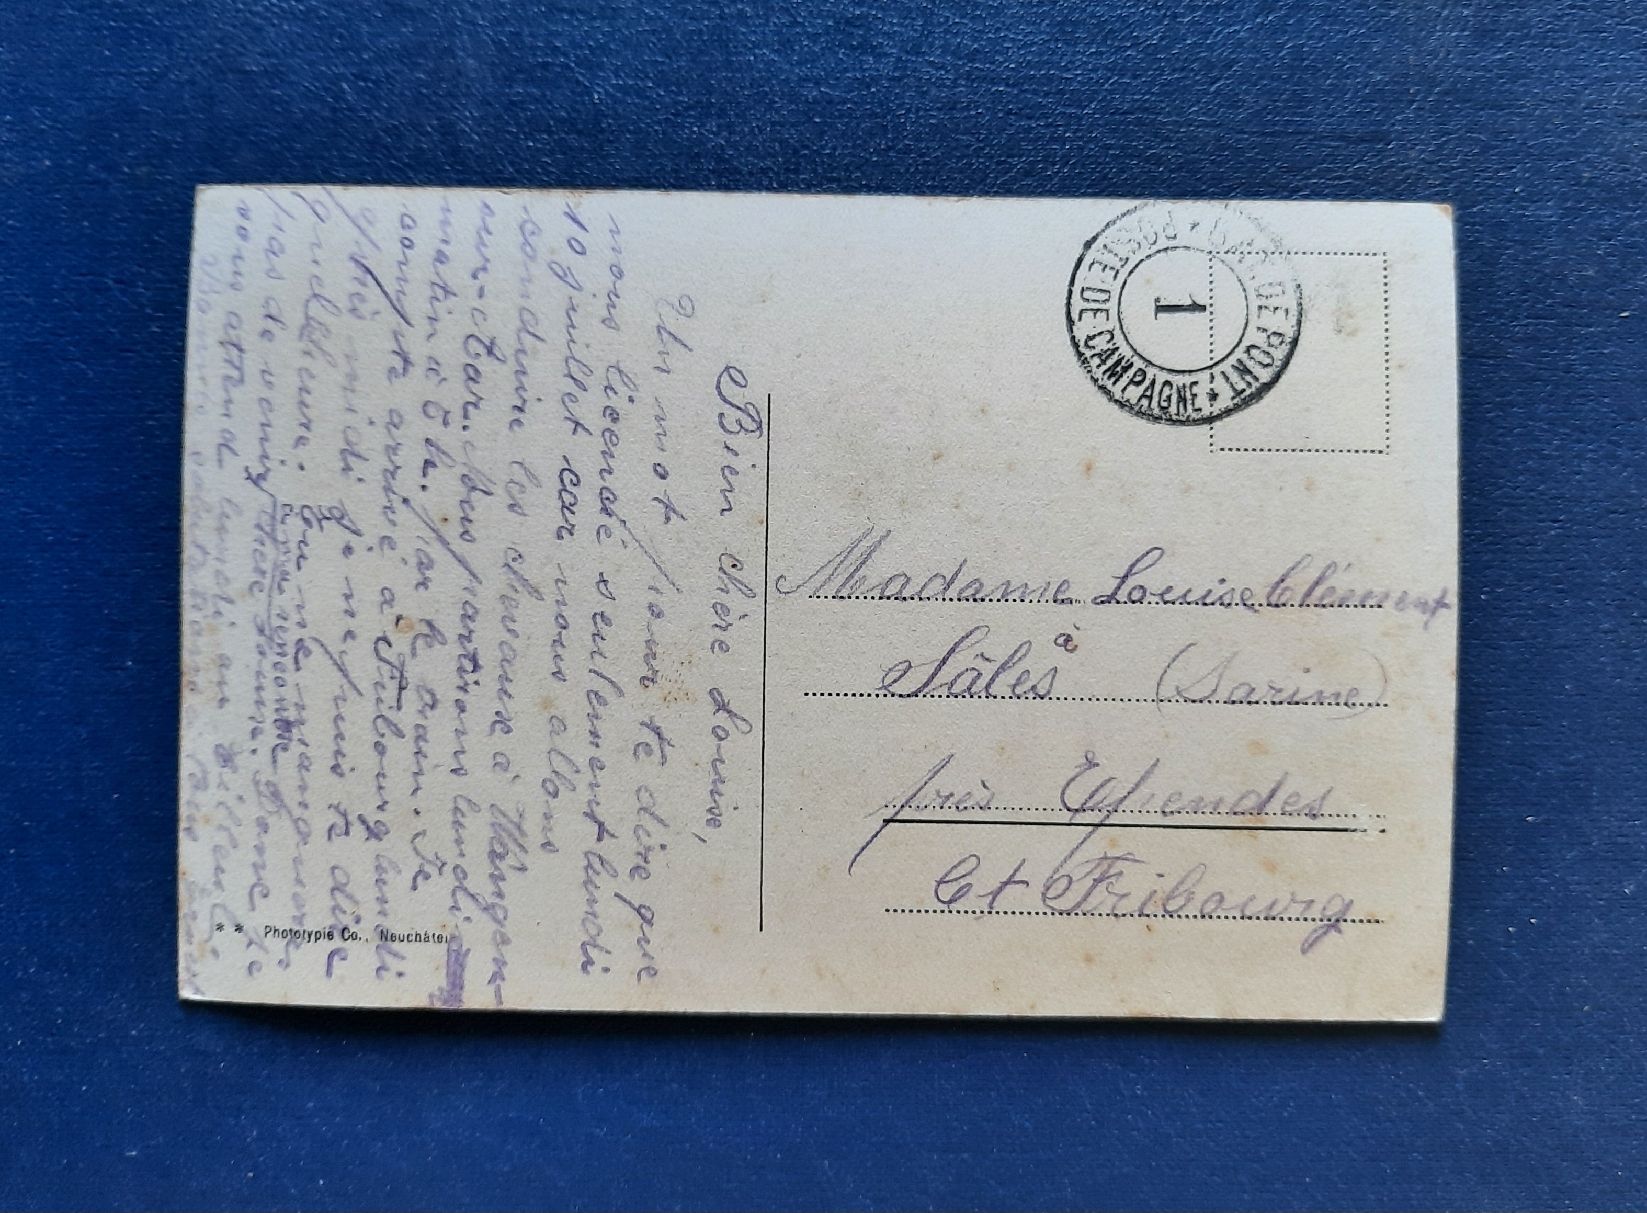 Bien chère Louise,
Un mot pour te dire que
nous licencié seulement lundi
10 juillet car nous allons
conduire les chevaux à Wangen-
sur-Aar. Nous partirons lundi
matin à 6 h. par le train. Je
compte arrivé à Fribourg lundi
après midi je ne puis te dire
quelle heure. Tu ne manquera
pas de venir à ma rencontre
chère Louise. Jeanne te
vous attend lundi au
Bonnes salutations
Madame Louise Clément
à
Sâles (Sarine)
près Ependes
Ct Fribourg
POSTE DE CAMPAGNE * GARDE PONT *
1
** Phototypie Co., Neuchâtel